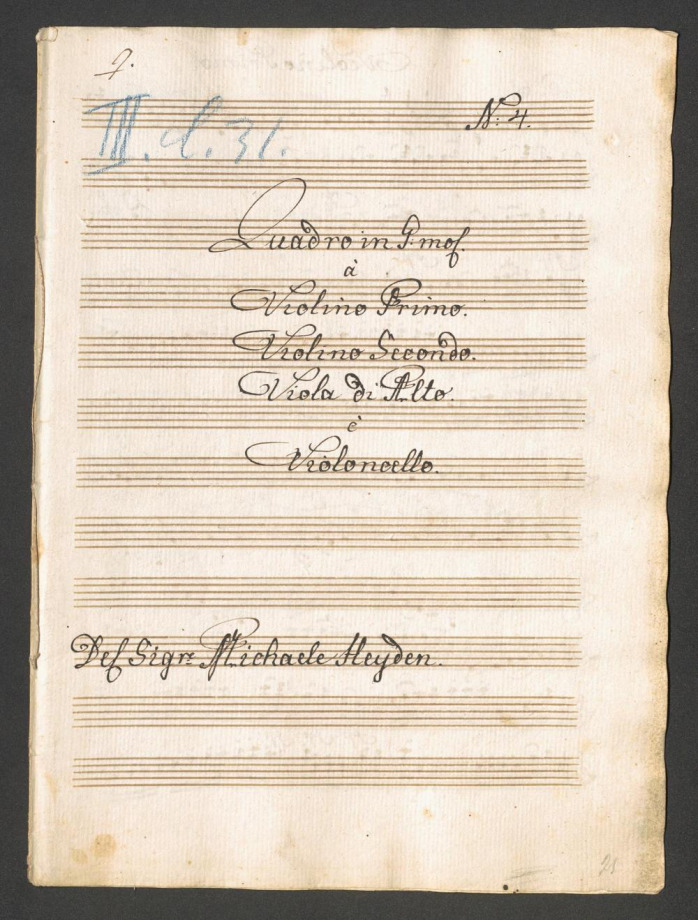 2.
III. d. 31.
N: 4.
Quadro in G. mol.
à
Violino Primo.
Violino Secondo.
Viola di Alto.
è
Violoncello.
Del Sigre: Michaele Heyden.
21